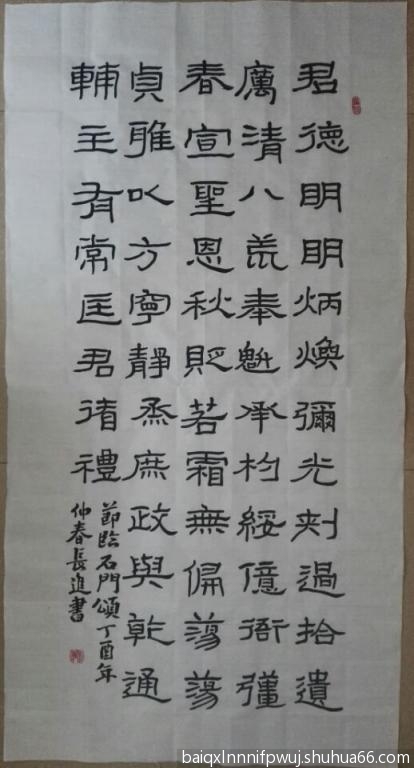 君德明明炳煥彌光刺過拾遺
厲清八荒奉魁承杓綏億衙彊
春宣聖恩秋貶若霜無偏蕩蕩
貞雅以方寧靜烝庶政與乾通
輔主有常匡君循禮
節臨石門頌丁酉年
仲春長進書
baiqxlnnnifpwuj.shuhua66.com